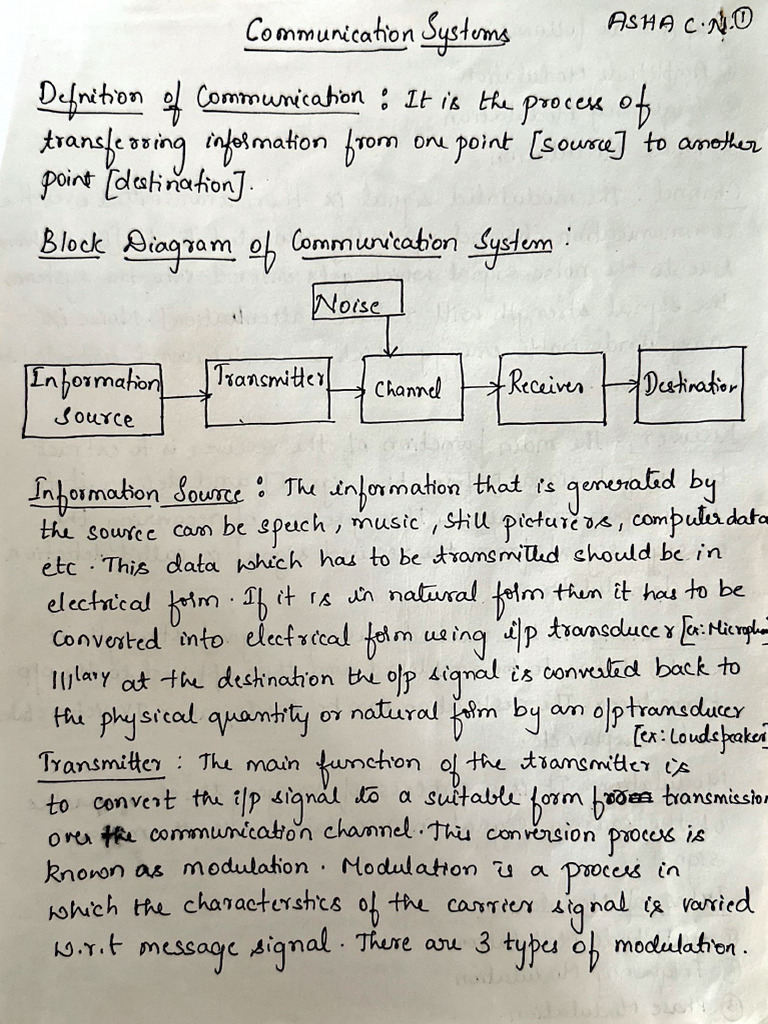 Communication Systems
ASHA C.N. ①
Defnition of Communication : It is the process of
transferring information from one point [source] to another
point [destination].
Block Diagram of Communication System :
Noise
Information
Source
Transmitter
Channel
Receiver
Destination
Information Source : The information that is generated by
the source can be speech, music, still pictures, computer data
etc. This data which has to be transmitted should be in
electrical form. If it is in natural form then it has to be
converted into electrical form using i/p transducer [ex: Microph
|||lary at the destination the o/p signal is converted back to
the physical quantity or natural form by an o/p transducer
[ex: Loudspeaker]
Transmitter : The main function of the transmitter is
to convert the i/p signal to a suitable form transmission
over the communication channel. This conversion process is
known as modulation. Modulation is a process in
which the characterstics of the carrier signal is varied
w.r.t message signal. There are 3 types of modulation.